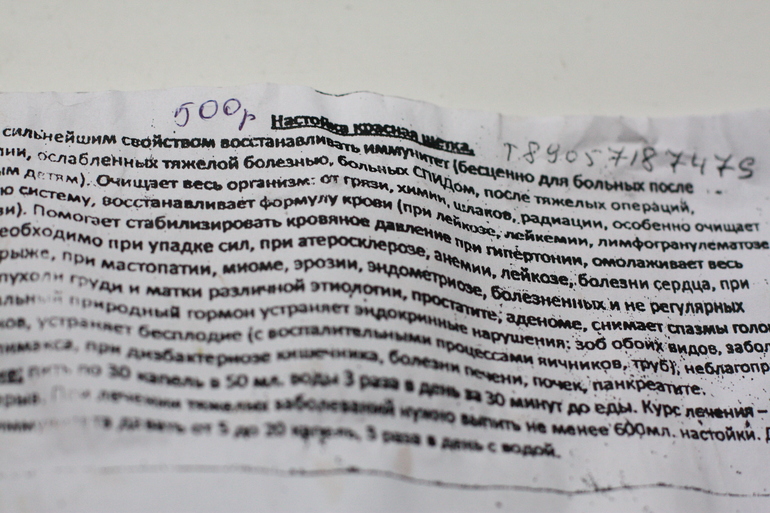 500р
Настойка красная щетка.
Т89057187479
сильнейшим свойством восстанавливать иммунитет (бесценно для больных после
ии, ослабленных тяжелой болезнью, больных СПИДом, после тяжелых операций,
ым детям). Очищает весь организм: от грязи, химии, шлаков, радиации, особенно очищает
ю систему, восстанавливает формулу крови (при лейкозе, лейкемии, лимфогранулематозе
ви). Помогает стабилизировать кровяное давление при гипертонии, омолаживает весь
еобходимо при упадке сил, при атеросклерозе, анемии, лейкозе, болезни сердца, при
рыже, при мастопатии, миоме, эрозии, эндометриозе, болезненных и не регулярных
пухоли груди и матки различной этиологии, простатите, аденоме, снимает спазмы голо
альный природный гормон устраняет эндокринные нарушения: зоб обоих видов, забол
ков, устраняет бесплодие (с воспалительными процессами яичников, труб), неблагопр
лимакса, при дизбактериозе кишечника, болезни печени, почек, панкреатите.
пить по 30 капель в 50 мл. воды 3 раза в день за 30 минут до еды. Курс лечения –
рыв. При лечении тяжелых заболеваний нужно выпить не менее 600мл. настойки. Д
от 5 до 20 капель, 3 раза в день с водой.